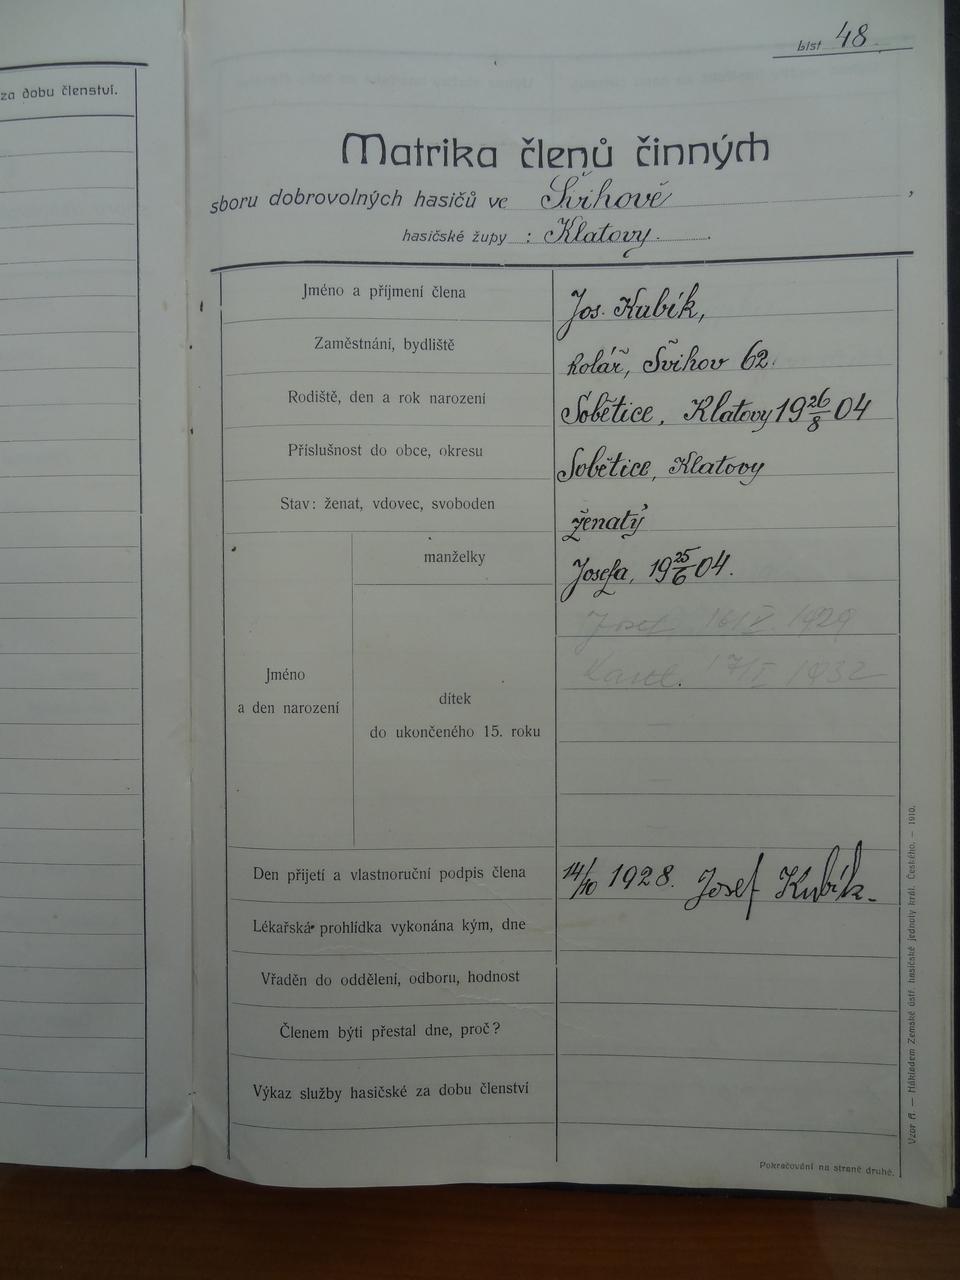 za dobu členství.
List 48
Matrika členů činných
sboru dobrovolných hasičů ve Švihově,
hasičské župy : Klatovy.
Jméno a příjmení člena
Jos. Kubík,
Zaměstnání, bydliště
kolář, Švihov 62.
Rodiště, den a rok narození
Sobětice, Klatovy 19 26/8 04
Příslušnost do obce, okresu
Sobětice, Klatovy
Stav: ženat, vdovec, svoboden
ženatý
manželky
Josefa, 19 25/6 04.
Josef 16/V. 1929
Karel. 17/I 1932
Jméno
a den narození
dítek
do ukončeného 15. roku
Den přijetí a vlastnoruční podpis člena
14/10 1928. Josef Kubík.
Lékařská prohlídka vykonána kým, dne
Vřaděn do oddělení, odboru, hodnost
Členem býti přestal dne, proč?
Výkaz služby hasičské za dobu členství
Pokračování na straně druhé.
Vzor A. — Nákladem Zemské ústř. hasičské jednoty král. Českého. — 1910.